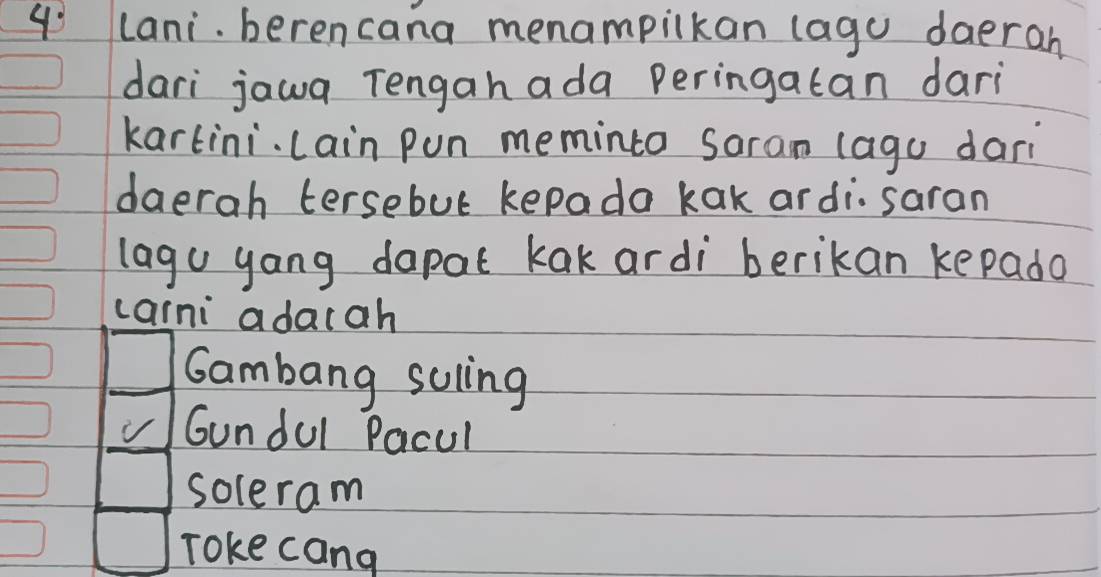 4. Lani. berencana menampilkan lagu daerah
dari jawa Tengah ada Peringatan dari
kartini. Lain pun meminta saran lagu dari
daerah tersebut kepada kak ardi. saran
lagu yang dapat kak ardi berikan kepada
Larni adalah
Gambang suling
✓ Gundul Pacul
soleram
Tokecang